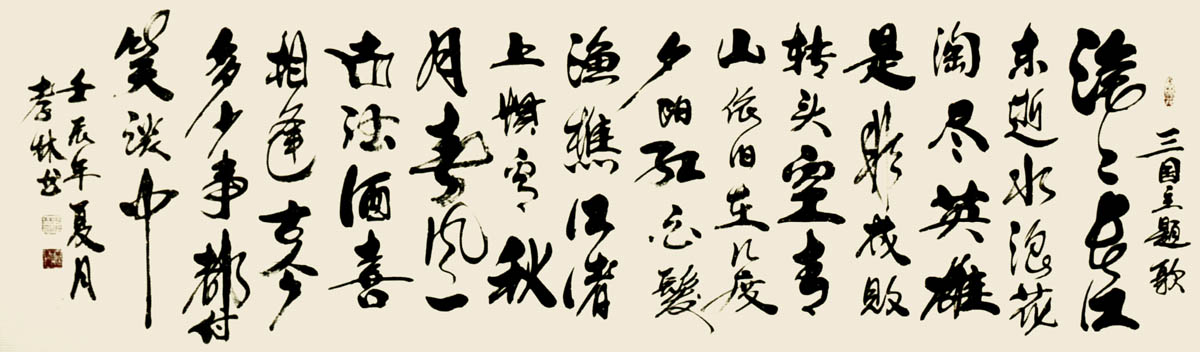 三国主题歌
滚々长江
东逝水浪花
淘尽英雄
是非成败
转头空青
山依旧在几度
夕阳红白髮
渔樵江渚
上惯看秋
月春风一
壶浊酒喜
相逢古今
多少事都付
笑谈中
壬辰年夏月
孝林书